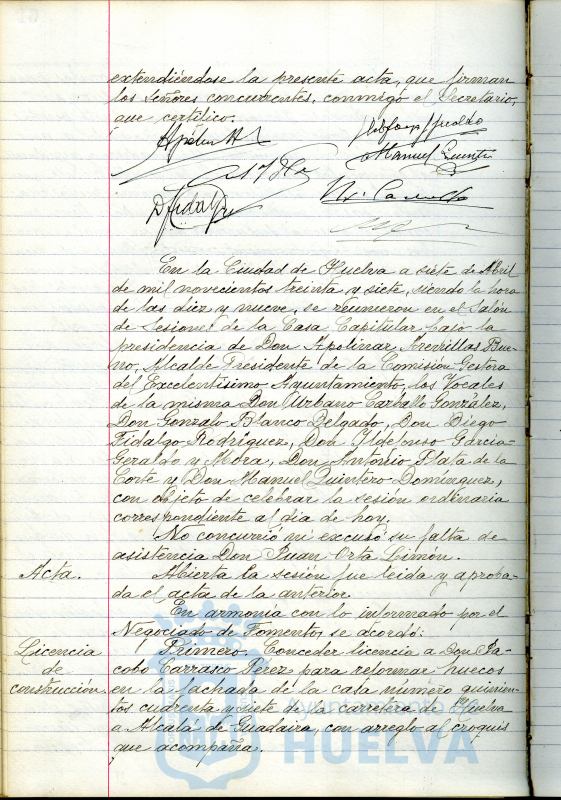 extendiéndose la presente acta, que firman
los señores concurrentes, conmigo el Secretario,
que certifico.
Manuel Quinte
D. Fidalgo
En la Ciudad de Huelva a siete de Abril
de mil novecientos treinta y siete, siendo la hora
de las diez y nueve, se reunieron en el Salón
de Sesiones de la Casa Capitular bajo la
presidencia de Don Apolinar Arenillas Bue-
no, Alcalde Presidente de la Comisión Gestora
del Excelentísimo Ayuntamiento, los Vocales
de la misma Don Urbano Carballo González,
Don Gonzalo Blanco Delgado, Don Diego
Fidalgo Rodríguez, Don Ildefonso García-
Geraldo y Mora, Don Antonio Plata de la
Corte y Don Manuel Quintero Domínguez,
con objeto de celebrar la sesión ordinaria
correspondiente al día de hoy.
No concurrió ni excusó su falta de
asistencia Don Juan Orta Limón.
Acta. Abierta la sesión fue leída y aproba-
da el acta de la anterior.
En armonía con lo informado por el
Negociado de Fomento se acordó:
Licencia Primero. Conceder licencia a Don Ja-
de cobo Carrasco Pérez para reformar huecos
construcción. en la fachada de la casa número quinien-
tos cuarenta y siete de la carretera de Huelva
a Alcalá de Guadaira, con arreglo al croquis
que acompaña.
Ayuntamiento de
HUELVA